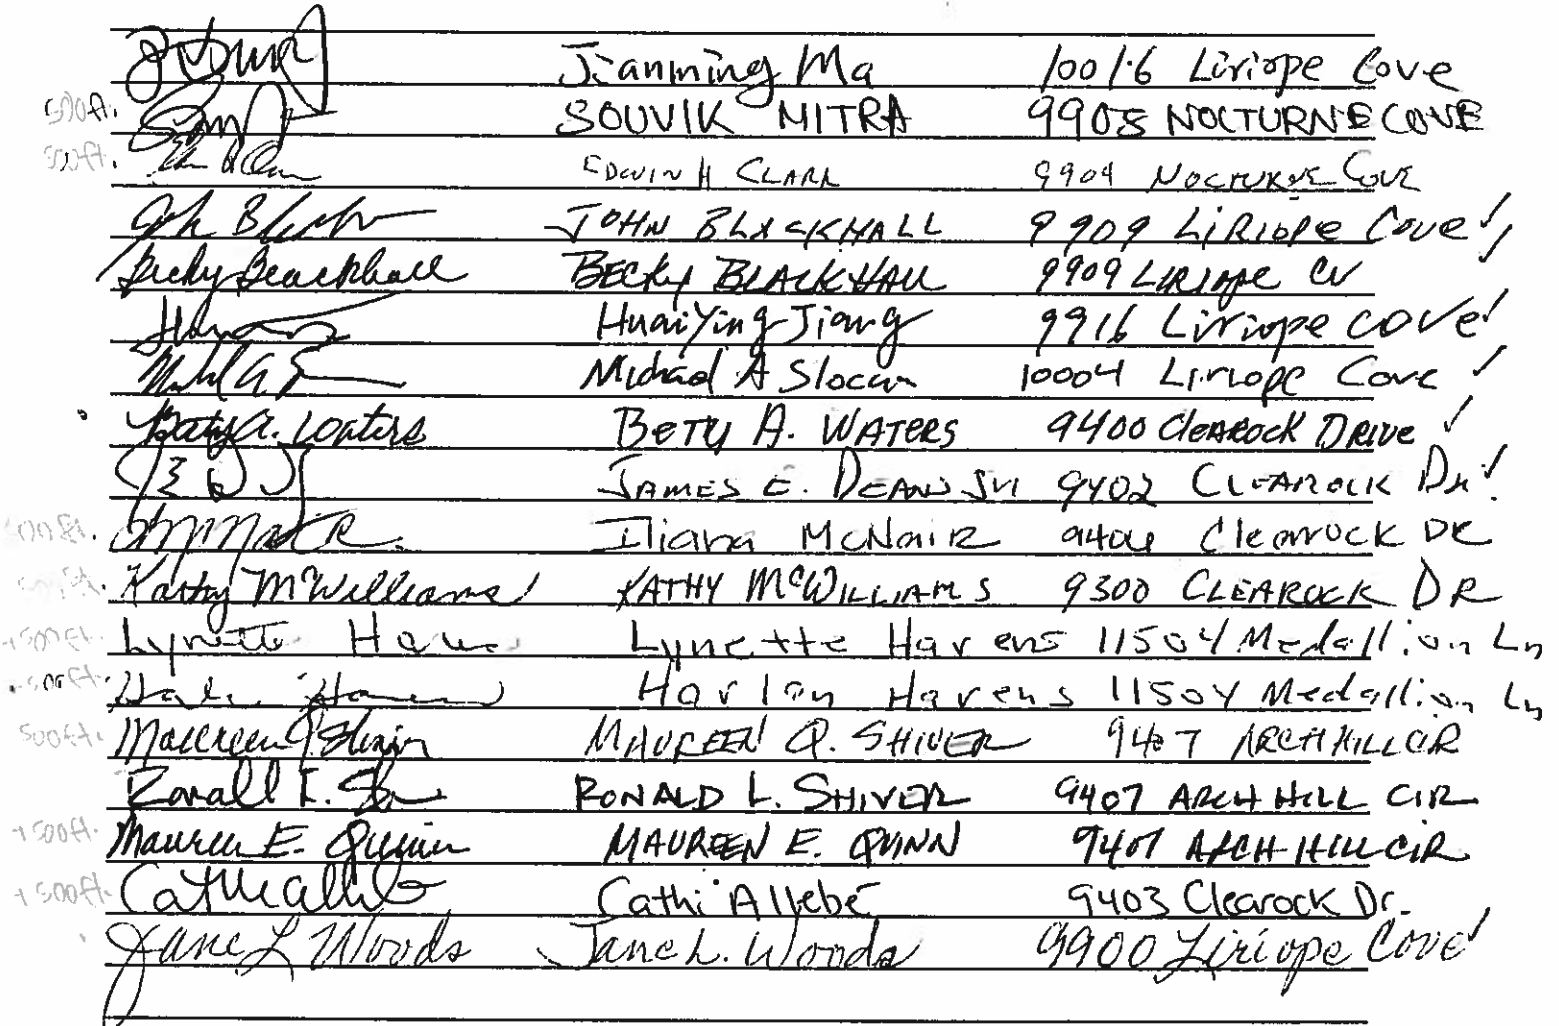 Jianming Ma 10016 Liriope Cove
500ft. SOUVIK MITRA 9908 NOCTURNE COVE
500ft. EDWIN H CLARK 9904 NOCTURNE COVE
John B JOHN BLACKHALL 9909 LiRiope Cove ✓
Becky Blackhall BECKY BLACKHALL 9909 LIRIOPE CV ✓
HuaiYing Jiang 9916 Liriope COVE ✓
Michael A Slocum 10004 Liriope Cove ✓
Betty A. Waters BETTY A. WATERS 9400 CleAROCK DRIVE ✓
JAMES E. 9402 CLEAROCK DR ✓
Iliana McNair 9404 Clearock DR
Kathy McWilliams KATHY McWILLIAMS 9300 CLEAROCK DR
+500ft. Lynette Havens Lynette Havens 11504 Medallion Ln
+500ft. Harlan Havens Harlan Havens 11504 Medallion Ln
500ft. Maureen Q. Shiver MAUREEN Q. SHIVER 9407 ARCH HILL CIR
Ronald L. RONALD L. SHIVER 9407 ARCH HILL CIR
+500ft. Maureen E. Quinn MAUREEN E. QUINN 9407 ARCH HILL CIR
+500ft. Cathi 9403 Clearock Dr.
Jane L Woods Jane L. Woods 9900 Liriope Cove ✓